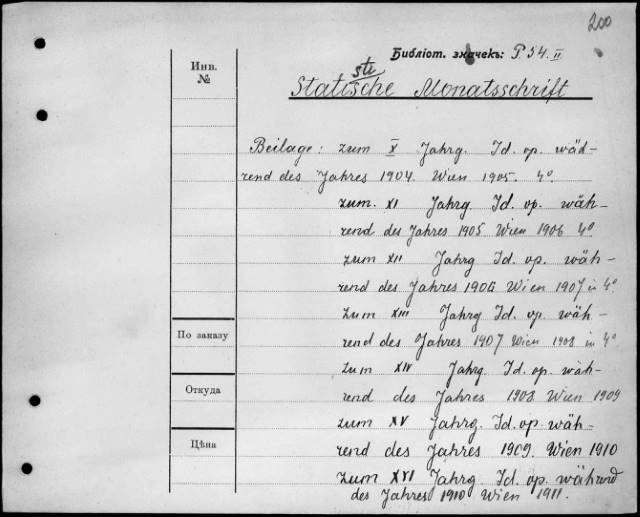 200
Библіот. значекъ: P.54.II
Инв.
№
sti
Statische Monatsschrift
Beilage: zum X Jahrg. Id. op. wäd-
rend des Jahres 1904. Wien 1905. 4º.
zum. XI Jahrg. Id. op. wäh-
rend des Jahres 1905 Wien 1906 4º
zum XII Jahrg Id. op. wäh-
rend des Jahres 1906 Wien 1907 in 4º
zum XIII Jahrg Id. op. wäh-
По заказу
rend des Jahres 1907 Wien 1908 in 4º
zum XIV Jahrg. Id. op. wäh-
Откуда
rend des Jahres 1908 Wien 1909
zum XV Jahrg. Id. op. wäh-
Цѣна
rend des Jahres 1909. Wien 1910
zum XVI Jahrg. Id. op. während
des Jahres 1910 Wien 1911.